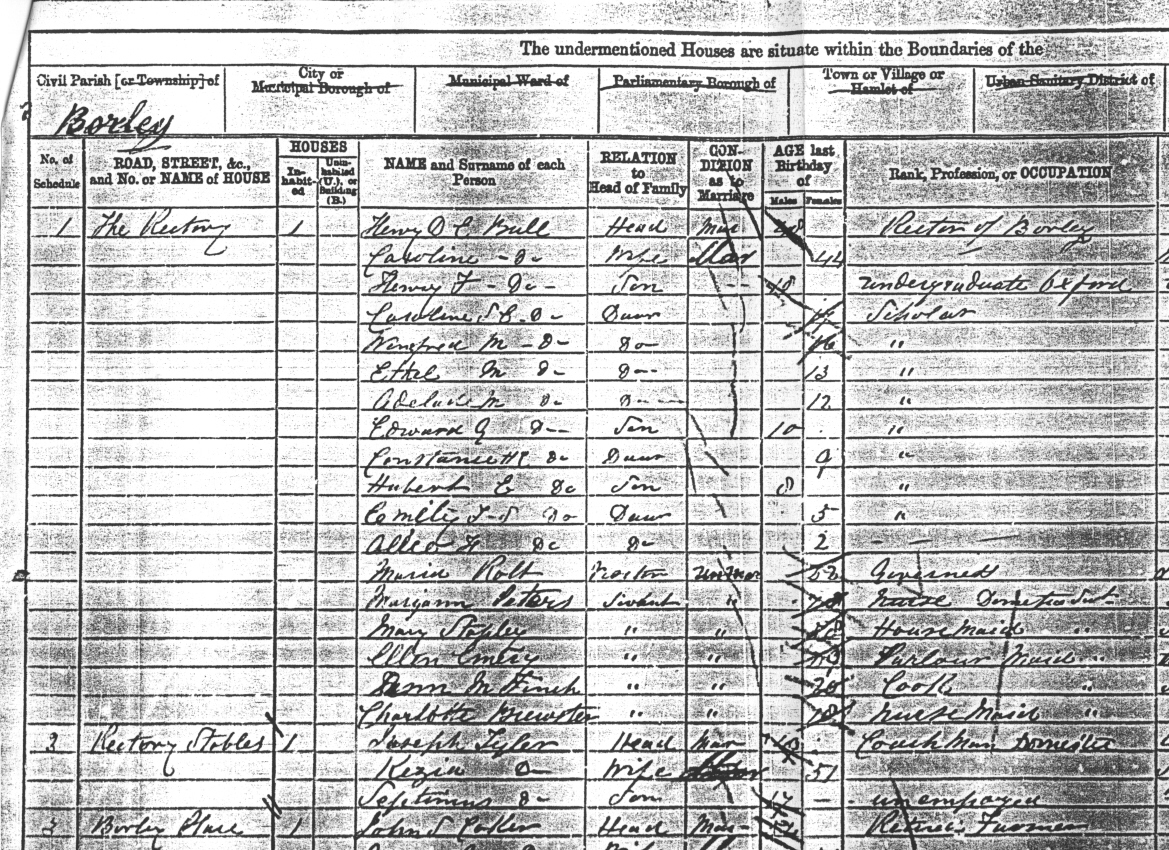 The undermentioned Houses are situate within the Boundaries of the
Civil Parish [or Township] of City or Municipal Borough of Municipal Ward of Parliamentary Borough of Town or Village or Hamlet of Urban Sanitary District of
Borley
No. of Schedule ROAD, STREET, &c., and No. or NAME of HOUSE HOUSES Inhabited Uninhabited (U.), or Building (B.) NAME and Surname of each Person RELATION to Head of Family CONDITION as to Marriage AGE last Birthday of Males Females Rank, Profession, or OCCUPATION
1 The Rectory 1 Henry D E Bull Head Mar Rector of Borley
Caroline - Do Wife Mar 44
Henry F - Do - Son -- 18 Undergraduate Oxford
Caroline S E. Do Daur Scholar
Winefred M - Do Do 16 "
Ethel M Do Do 13 "
Adelaide M Do Do 12 "
Edward G Do Son 10 "
Constance H Do Daur 9 "
Hubert E Do Son 8 "
Emily F S Do Daur 5 "
Do Do 2
Maria Rolt Unmar 52 Governess
Maryann Peters Servant " Nurse Domestic Servt
Mary Stapley " " House Maid "
Ellen Emery " " Parlour Maid "
M Finch " " 20 Cook "
Charlotte Brewster " " 18 Nurse Maid "
2 Rectory Stables 1 Joseph Tyler Head Mar Coachman Domestic
Kezia Do Wife 51
Septimus Do Son 17 unemployed
3 Borley Place 1 John S Coker Head Mar Retired Farmer